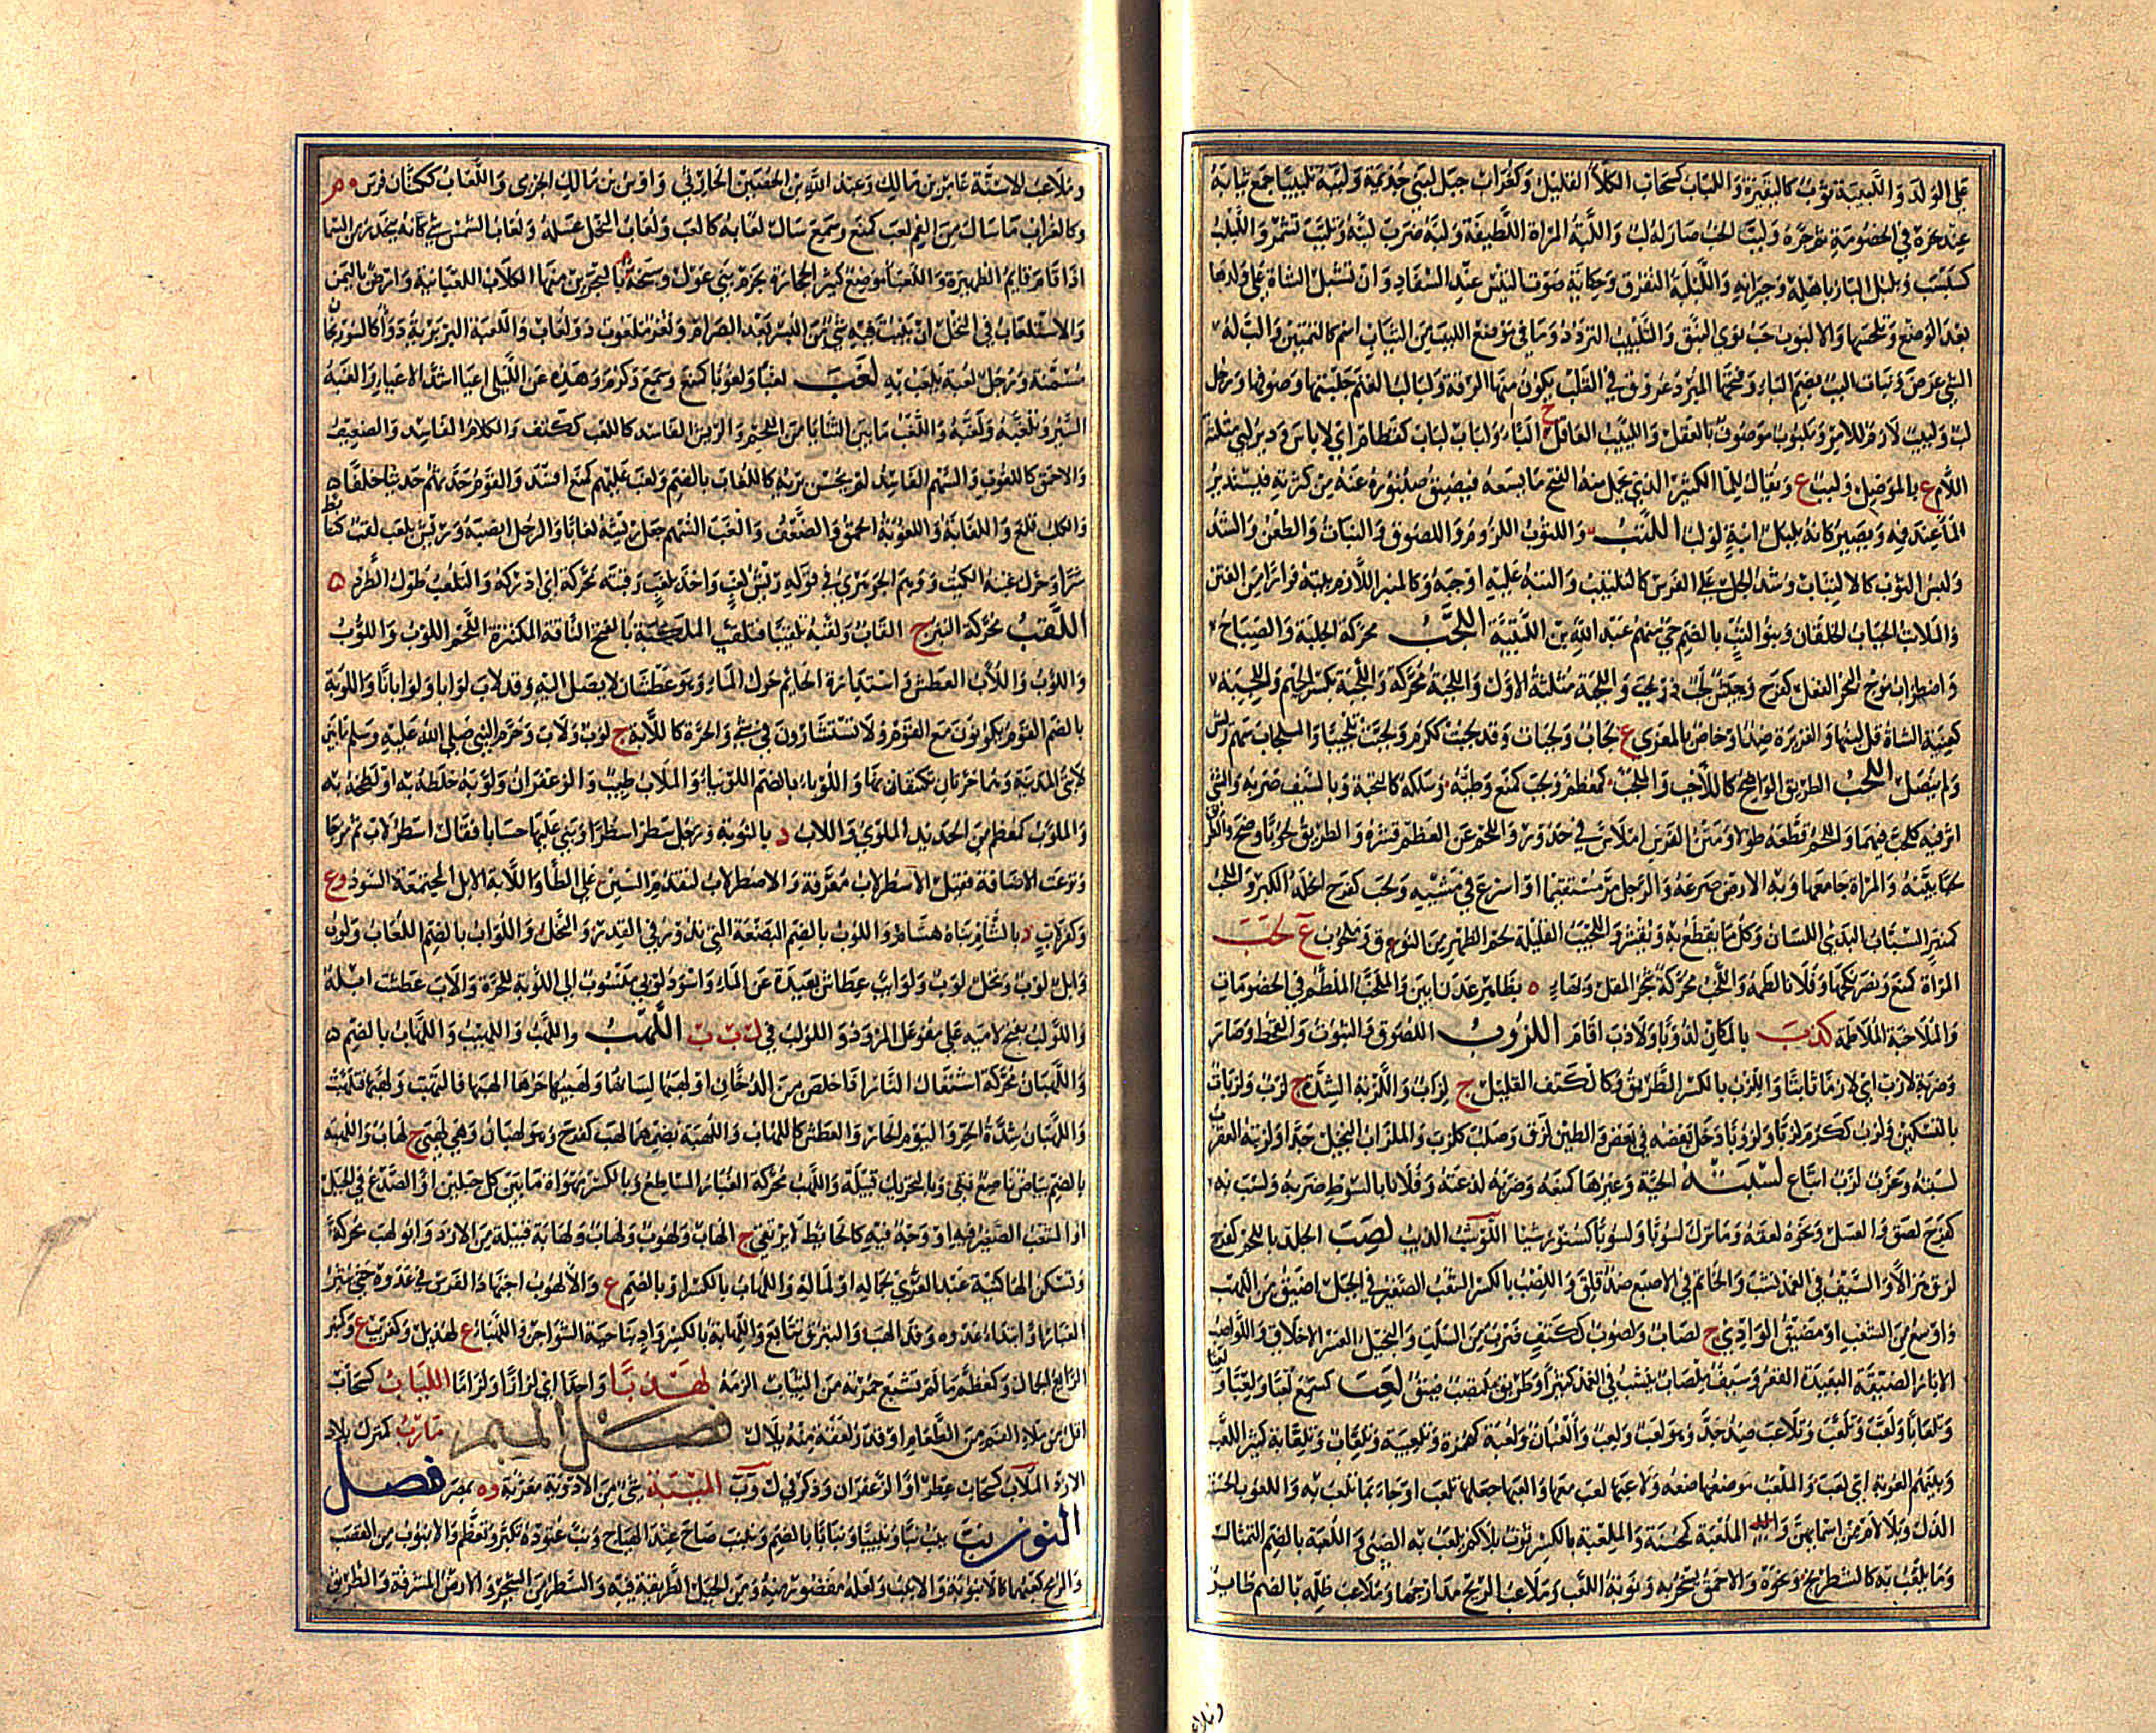 على الولد واللبيبة ثوب كالبقيرة واللباب كسحاب الكلأ القليل وكغراب جبل لبني جذيمة ولببه تلبيبا جمع ثيابه
عند نحره في الخصومة ثم جره ولبب الحب صار له لب واللبة المرأة اللطيفة ولبه ضرب لبته وتلبب تشمر واللبلب
كسبسب وبلبل البار بأهله وجيرانه واللبلبة التفرق وحكاية صوت التيس عند السفاد وان تشبل الشاة على ولدها
بعد الوضع وتلحسها والالبوب حب نوى النبق والتلبيب التردد وما في موضع اللبب من الثياب اسم كالتمتين واللب له
الشيء عرض ونبات البب بضم الباء وفتحها المبرد عروق في القلب يكون منها الرقة ولبالب الغنم جلبتها وصوتها ورجل
لب ولبيب لازم للامر وملبوب موصوف بالعقل واللبيب العاقل ج البباء ولباب لباب كقطام اي لا باس ودير لبى مثلثة
اللام ع بالموصل ولبب ع ويقال للماء الكثير الذي يحمل منه الفتح ما يسعه فيضيق صنبوره عنه من كثرته فيستدير
الماء عند فيه ويصير كانه بلبل انية لولب اللتب واللتوب اللزوم واللصوق والثبات والطعن والشد
ولبس الثوب كالالتتاب وشد الجل على الفرس كالتلتيب والتبه عليه اوجبه وكالمنبر اللازم بيته فرارا من الفتن
والملاتب الجباب الخلقان وبنو اللتب بالضم حي منهم عبد الله بن اللتبية اللجب محركة الجلبة والصياح
واضطراب موج البحر الفعل كفرح وجيش لجب ذو لجب واللجبة مثلثة الاول واللجبة محركة واللجبة بكسر الجيم واللجبة
كعنبة الشاة قل لبنها والغزيرة ضد او خاص بالمعزى ج لجاب ولجبات وقد لجبت ككرم ولجبت تلجيبا والملجاب سهم ريش
ولم ينصل اللحب الطريق الواضح كاللاحب والملحب كمعظم ولحب كمنع وطئه وسلكه كالتحبه وبالسيف ضربه والشيء
اثر فيه كلحب فيهما واللحم قطعه طولا ومتن الفرس املاس في حدور واللحم عن العظم قشره والطريق لحوبا وضح والطريق
لحبا بينه والمراة جامعها وبه الارض صرعه والرجل مر مستقيما او اسرع في مشيه ولحب كفرح انحله الكبر والملحب
كمنبر السباب البذي اللسان وكل ما يقطع به ويقشر واللحيب القليلة لحم الظهر من النوق وملحوب ع لخب
المراة كمنع ونصر نكحها وفلانا لطمه واللخب محركة شجر المقل ولخاب ه بظاهر عدن ابين والملخب الملطم في الخصومات
والملاخبة الملاطمة لذب بالمكان لذوبا ولاذب اقام اللزوب اللصوق والثبوت والقحط وصار
ضربة لازب اي لازما ثابتا واللزب بالكسر الطريق وكالكتف القليل ج لزاب واللزبة الشدة ج لزب ولزبات
بالتسكين ولزب ككرم لزبا ولزوبا دخل بعضه في بعض والطين لزق وصلب كلزب والملزاب البخيل جدا ولزبته العقرب
لسبته وعزب لزب اتباع لسبته الحية وغيرها كمنعه وضربه لدغته وفلانا بالسوط ضربه ولسب به
كفرح لصق والعسل ونحوه لعقه وما ترك لسوبا ولسوبا كسنور شيئا اللوشب الذيب لصب الجلد باللحم كفرح
لزق هزالا والسيف في الغمد نشب والخاتم في الاصبع ضد قلق واللصب بالكسر الشعب الصغير في الجبل اضيق من اللهب
واوسع من الشعب او مضيق الوادي ج لصاب ولصوب ككتف ضرب من السلت والبخيل العسر الاخلاق واللواصب
الابار الضيقة البعيدة القعر وسيف ملصاب ينشب في الغمد كثيرا وطريق ملتصب ضيق لعب كسمع لعبا ولعبا ولعبا
وتلعابا ولعب وتلعب وتلاعب ضد جد وهو لعب ولعب والعبان ولعبة كهمزة وتلعيبة وتلعاب وتلعابة كثير اللعب
وبينهم العوبة اي لعب والملعب موضعها ولاعبها لعب معها والعبها جعلها تلعب او جاءها بما تلعب به واللعوب الحسنة
الدل وبلا لام من اسمائهن والملعبة كمحسنة والملعبة بالكسر ثوب بلا كم يلعب به الصبي واللعبة بالضم التمثال
وما يلعب به كالشطرنج ونحوه والاحمق يسخر به ونوبة اللعب وملاعب الريح مدارجها وملاعب ظله بالضم طائر
وملاعب
وملاعب الاسنة عامر بن مالك وعبد الله بن الحصين الحارثي واوس بن مالك الجرمي واللعاب ككتان فرس م
وكالغراب ما سال من الفم لعب كمنع وسمع سال لعابه كالعب ولعاب النحل عسله ولعاب الشمس شيء كانه ينحدر من السماء
اذا قام قايم الظهيرة واللعباء موضع كثير الحجارة بحزم بني عوال وسبخة م بالبحرين منها الكلاب اللعبانية وارض باليمن
والاستلعاب في النخل ان ينبت فيه شيء من البسر بعد الصرام وثغر ملعوب ذو لعاب واللعبة البربرية دواء كالسورنجان
مسمنة ورجل لعبة يلعب به لغب لغبا ولغوبا كمنع وسمع وكرم وهذه عن اللبلي اعيا اشد الاعياء والغبه
السير ولغبه وتلغبه واللغب ما بين الثنايا من اللحم والريش الفاسد كاللغب ككتف والكلام الفاسد والضعيف
والاحمق كاللغوب والسهم الفاسد لم يحسن بريه كاللغاب بالضم ولغب عليهم كمنع افسد والقوم حدثهم حديثا خلفا
والكلب ولغ واللغابة واللغوبة الحمق والضعف والغب السهم جعل ريشه لغابا والرجل انصبه وريش بلغب لقب تابط
شرا وحرك غينه الكميت ووهم الجوهري في قوله وريش لغب واخذ بلغب رقبته محركة اي ادركه والتلغب طول الطرد
اللقب محركة النبز ج القاب ولقبه تلقيبا فتلقب الملكبة بالفتح الناقة المكتنزة اللحم اللوب واللوب
واللؤب واللواب العطش واستدارة الحايم حول الماء وهو عطشان لا يصل اليه وقد لاب لوبا ولوابا ولوبانا واللوبة
بالضم القوم يكونون مع القوم ولا يستشارون في شيء والحرة كاللابة ج لوب ولاب وحرم النبي صلى الله عليه وسلم ما بين
لابتي المدينة وهما حرتان تكتنفانها واللوباء بالضم اللوبياء والملاب طيب والزعفران ولوبه خلطه به او لطخه به
والملوب كمعظم من الحديد الملوي واللاب د بالنوبة ورجل سطر اسطرا وبنى عليها حسابا فقال اسطرلاب ثم مزجا
ونزعت الاضافة فقيل الاسطرلاب معرفة والاصطرلاب لتقدم السين على الطاء واللابة الابل المجتمعة السود وع
وكغراب د بالشام بناه هشام واللوب بالضم البضعة التي تدور في القدر والنحل واللواب بالضم اللعاب ولوب
وابل لوب ونخل لوب ولوائب عطاش بعيدة عن الماء واسود لوبي منسوب الى اللوبة للحرة والاب عطشت ابله
واللولب بفتح لاميه على مفوعل المرود واللولب في ل ب ب اللهب واللهب واللهيب واللهاب بالضم
واللهبان محركة اشتعال النار اذا خلص من الدخان او لهبها لسانها ولهيبها حرها الهبها فالتهبت ولهبها فتلهبت
واللهبان شدة الحر واليوم الحار والعطش كاللهاب واللهبة بضمهما لهب كفرح وهو لهبان وهي لهبى ج لهاب واللهبة
بالضم بياض ناصع نقي وبالتحريك قبيلة واللهب محركة الغبار الساطع وبالكسر مهواة ما بين كل جبلين او الصدع في الجبل
او الشعب الصغير فيه او وجه فيه كالحائط لا يرتقى ج الهاب ولهوب ولهاب ولهابة قبيلة من الازد وابو لهب محركة
وتسكن الهاء كنية عبد العزى لجماله او لماله واللهاب بالكسر او بالضم ع والالهوب اجتهاد الفرس في عدوه حتى يثير
الغبار او ابتداء عدوه وقد الهب والبرق تتابع واللهابة بالكسر واد بناحية الشواجن واللهباء ع لهذيل وكقريب ع وكمنبر
الرائع الجمال وكمعظم ما لم تشبع حمرته من الثياب الزمه لهذبا واحدا اي لزازا ولزاما اللياب كسحاب
اقل من ملء الفم من الطعام او قدر لعقة منه يلاك فصل الميم مارب كمنزل بلاد
الازد الملاب كسحاب عطر او الزعفران وذكر في ل و ب الميبة شيء من الادوية معربة وه بمصر فصل
النون نب ينب نبا ونبيبا ونبابا بالضم ونبنب صاح عند الهياج ونب عتوده تكبر وتعظم والانبوب من القصب
والرمح كعبهما كالانبوبة والانبب ولعله مقصور منه ومن الجبل الطريقة فيه والسطر من الشجر والارض المشرفة والطريق